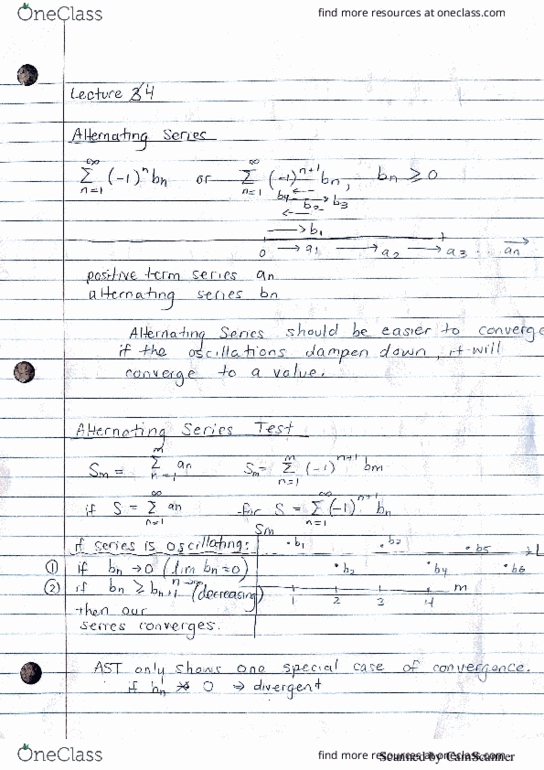 OneClass
find more resources at oneclass.com
Lecture 34
Alternating Series
∞ Σ n=1 (-1)^n bn or ∞ Σ n=1 (-1)^n+1 bn, bn ≥ 0
b4
b2 b3
b1
0 a1 a2 a3 an
positive term series an
alternating series bn
Alternating Series should be easier to converge
if the oscillations dampen down, it will
converge to a value.
Alternating Series Test
Sm = m Σ n=1 an Sm = m Σ n=1 (-1)^n+1 bm
if S = ∞ Σ n=1 an for S = ∞ Σ n=1 (-1)^n+1 bn
Sm
if series is oscillating: b1 b2 b5 L
① if bn → 0 (lim n→∞ bn = 0) b2 b4 b6
② if bn ≥ bn+1 (decreasing) 1 2 3 4 m
then our
series converges.
AST only shows one special case of convergence.
if bn ↛ 0 → divergent
OneClass
find more resources at oneclass.com
Scanned by CamScanner